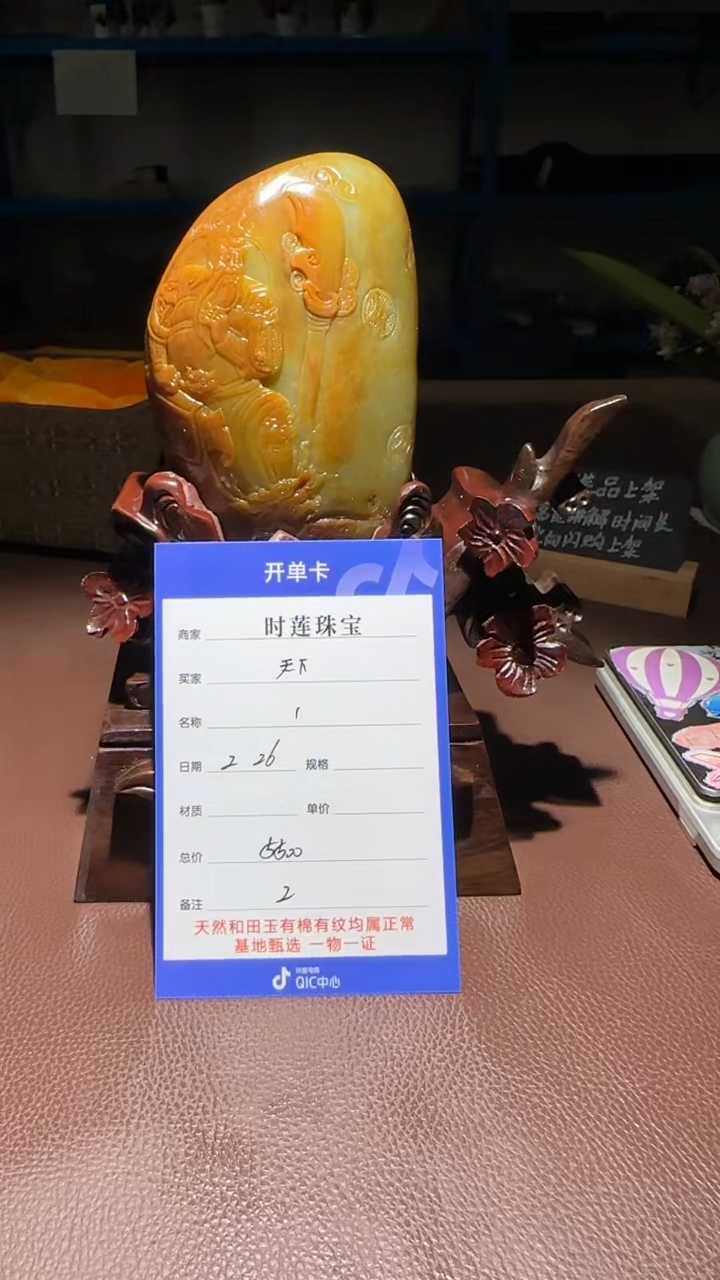 开单卡
商家 时莲珠宝
买家 天下
名称 1
日期 2 26 规格
材质 单价
总价 5500
备注 2
天然和田玉有棉有纹均属正常
基地甄选 一物一证
抖音电商
QIC中心
品上架
解时间长
闪购上架